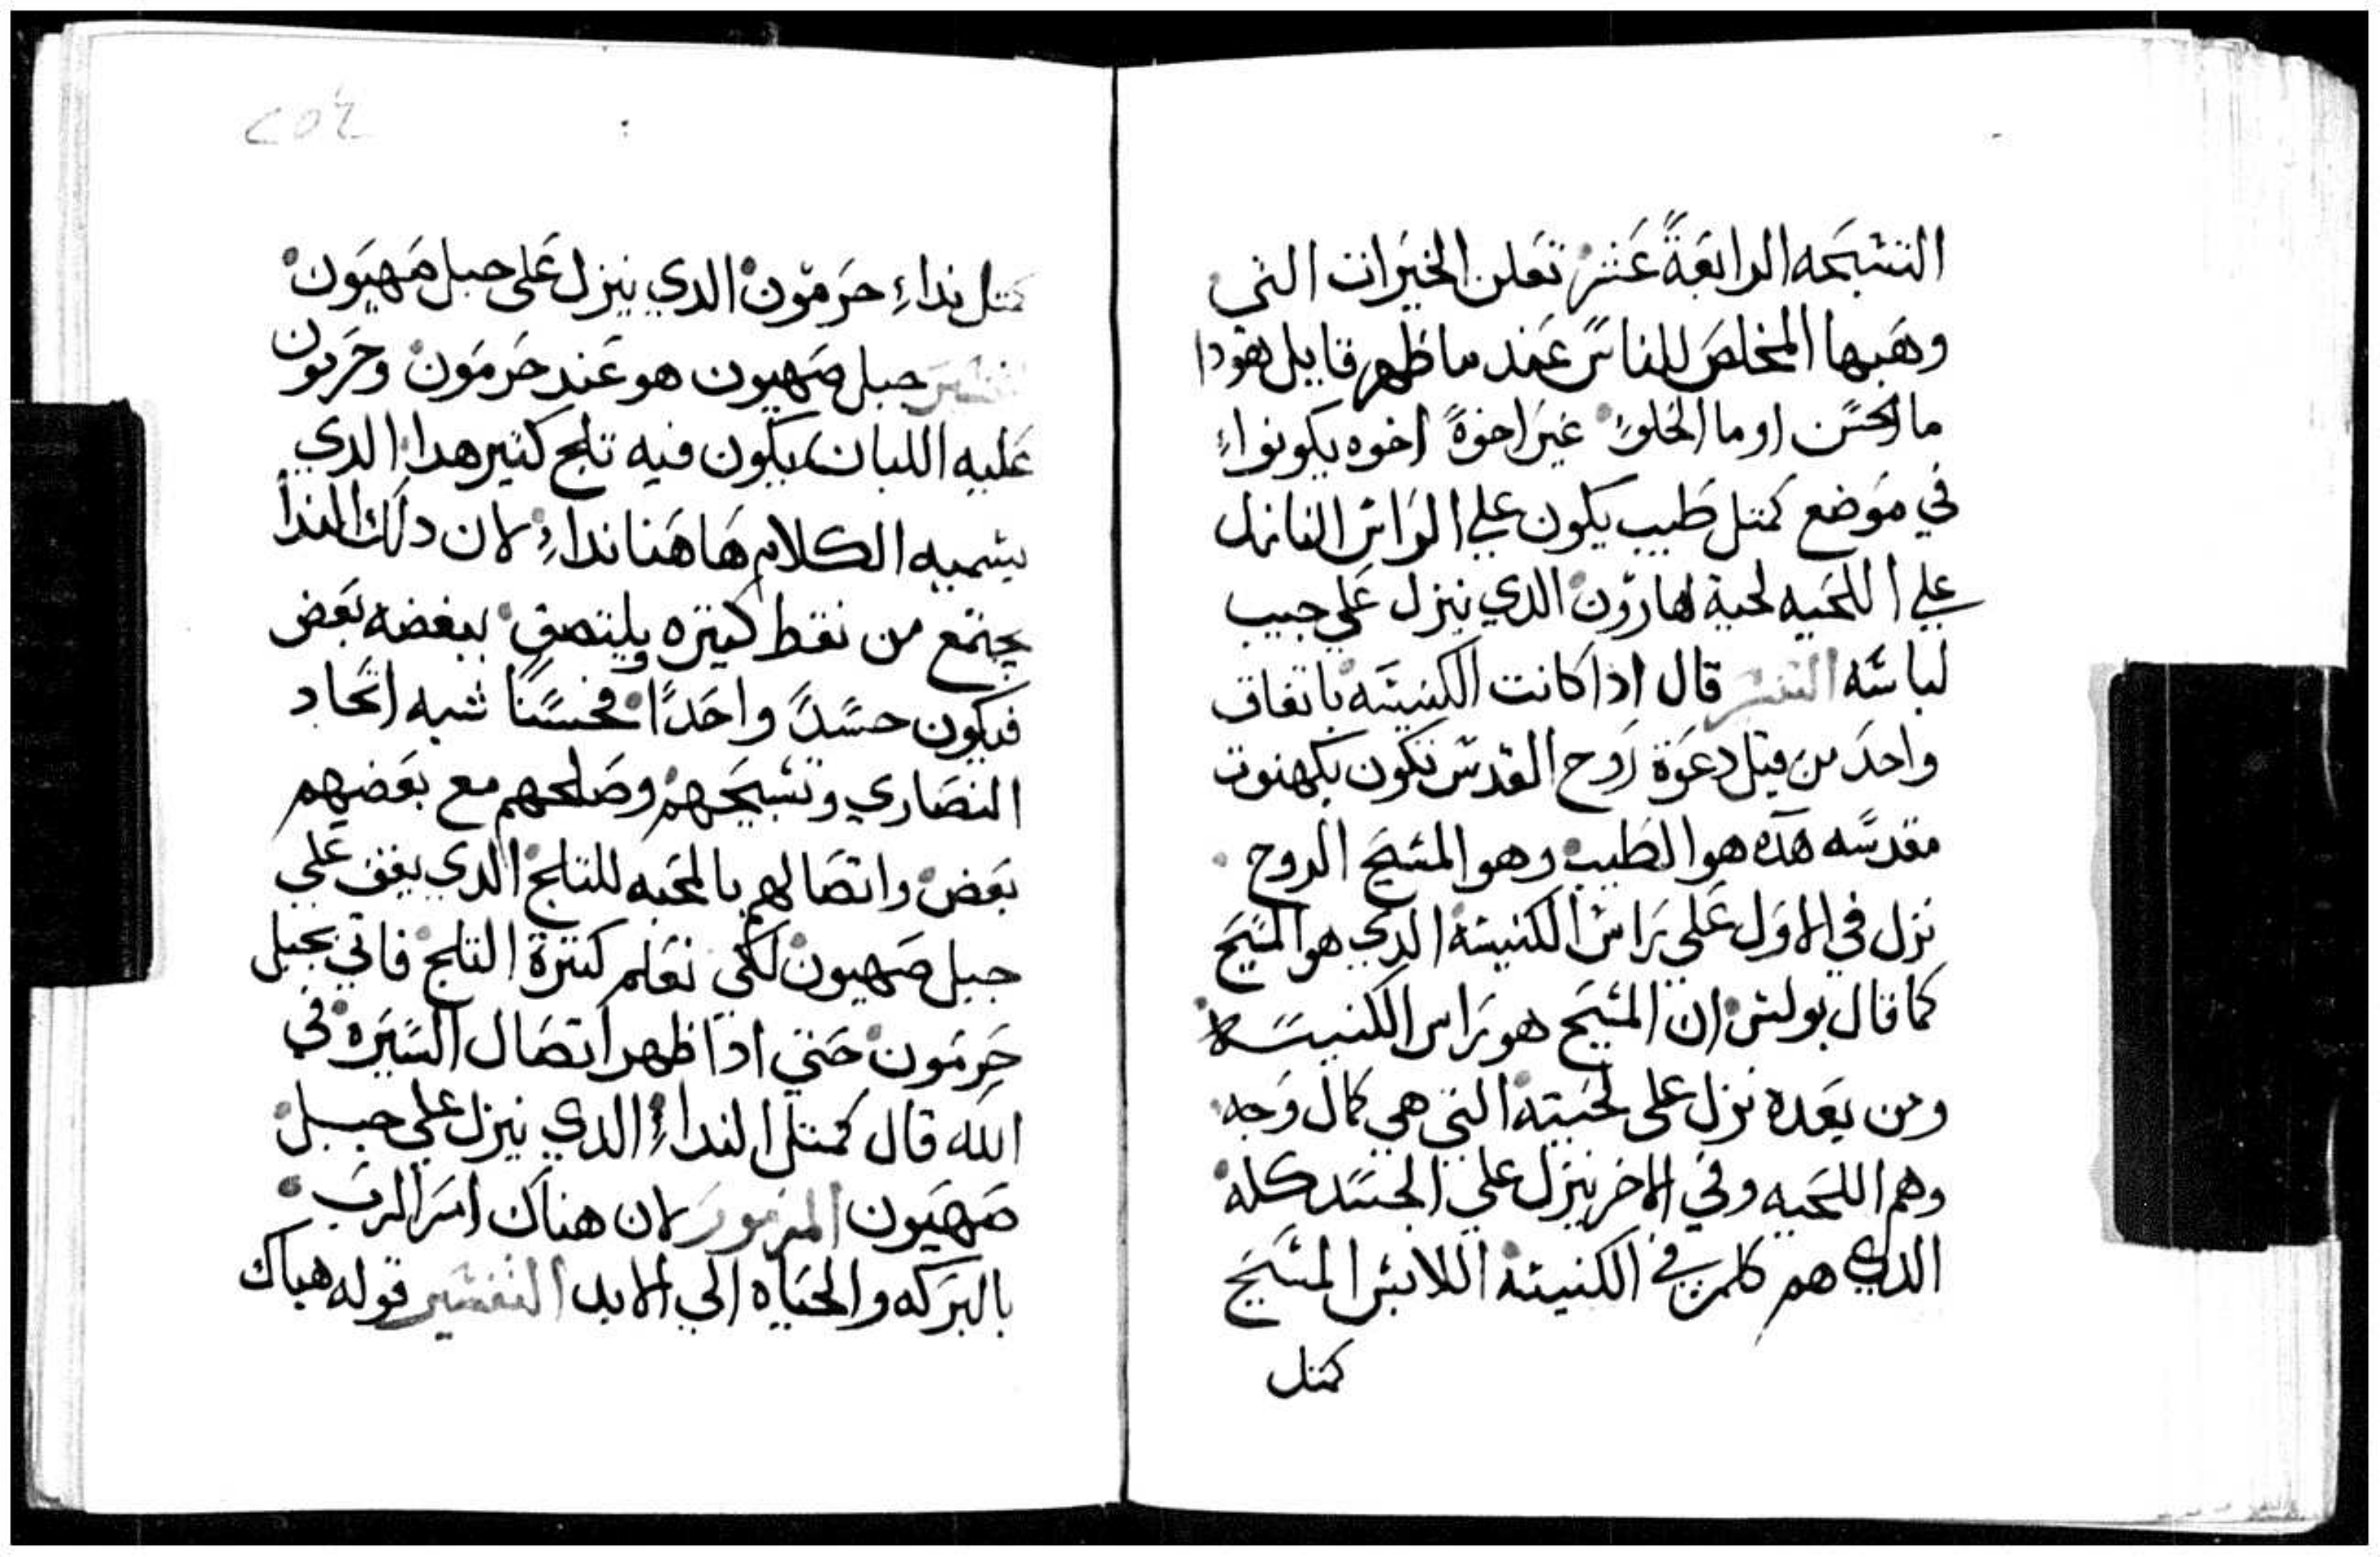 التسبحه الرابعةً عشر تعلن الخيرات التي
وهبها المخلص للناس عند ما ظهر قايل هودا
ما الحسن او ما الحلو غير اخوةً اخوه يكونواء
في موضع كمتل طيب يكون علي الراس النازل
علي اللحيه لحية هارون الدي ينزل علي جيب
لباسه التفسير قال اذا كانت الكنيسه باتفاق
واحد من قبل دعوة روح القدس تكون بكهنوت
مقدسه هده هو الطيب وهو المسيح الروح
نزل في الاول علي راس الكنيسه الدي هو المسيح
كما قال بولس ان المسيح هو راس الكنيسه
ومن بعده نزل على لحيته التي هي كمال وجه
وهم اللحيه وفي الاخر ينزل علي الجسد كله
الدي هم كلمن في الكنيسه اللابس المسيح
كمتل
٢٥٤
كمتل نداء حرمون الدي ينزل على جبل صهيون
التفسير جبل صهيون هو عند حرمون وحرمون
عليه اللبان يكون فيه تلج كتير هدا الدي
يسميه الكلام هاهنا نداء لان دلك الندا
يجتمع من نقط كتيره ويلتصق ببعضه بعض
فيكون جسدً واحدًا فحسنًا شبه اتحاد
النصاري وتسبيحهم وصلحهم مع بعضهم
بعض واتصالهم بالمحبه للتلج الدي يقف علي
جبل صهيون لكي نعلم كترة التلج فاتي بجبل
حرمون حتي ادا ظهر اتصال السيره في
الله قال كمتل النداء الدي ينزل علي جبل
صهيون المزمور لان هناك امر الرب
بالبركه والحياه الي الابد التفسير قوله هناك